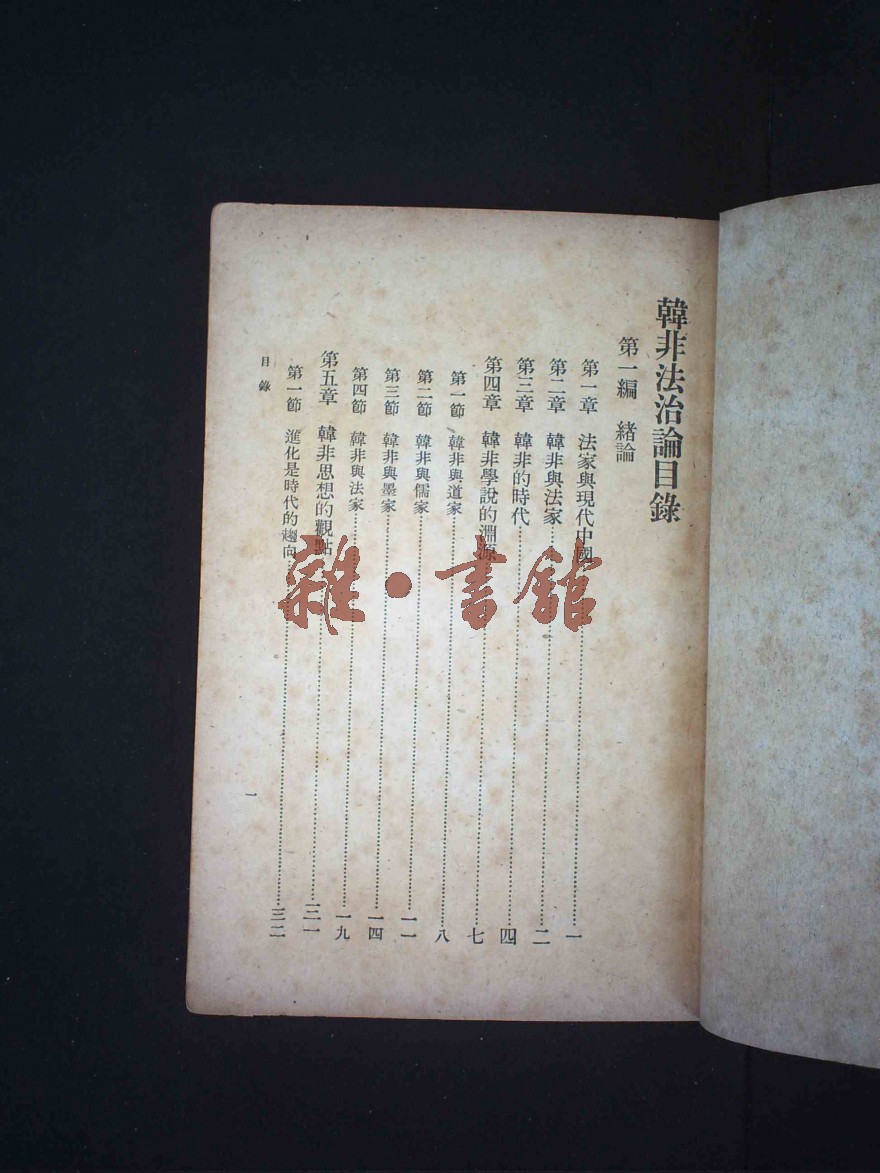 韓非法治論目錄
第一編 緒論
第一章 法家與現代中國……一
第二章 韓非與法家……二
第三章 韓非的時代……四
第四章 韓非學說的淵源……七
第一節 韓非與道家……八
第二節 韓非與儒家……一一
第三節 韓非與墨家……一四
第四節 韓非與法家……一九
第五章 韓非思想的觀點……三一
第一節 進化是時代的趨向……三二
目錄
一
雜·書館